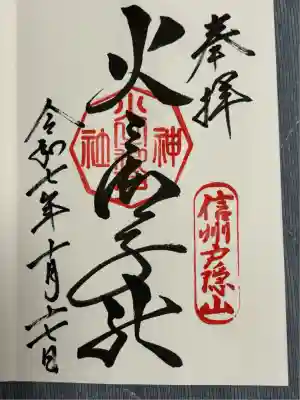 奉拝
信州戸隠山
火之御子社
神社
令和七年十月十七日